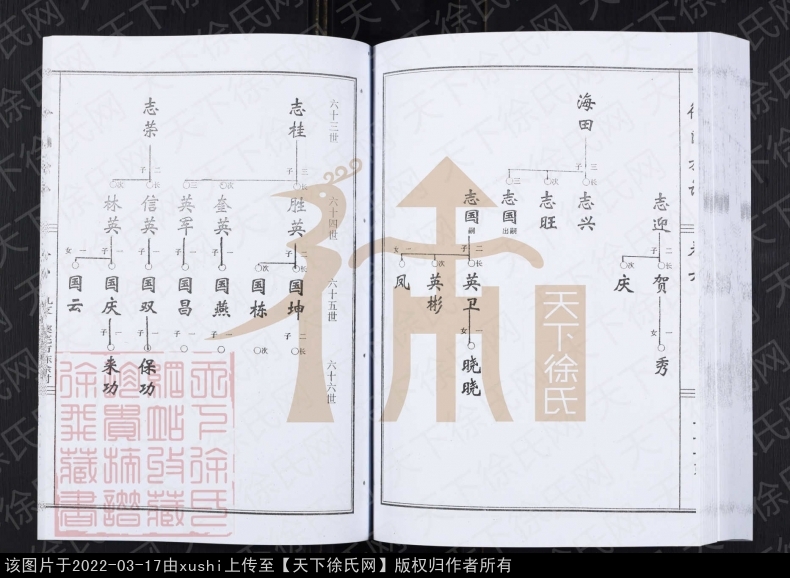 海田
三子
长
三
志兴
志旺
志国
出嗣
志迎
二子
长
次
贺
庆
一女
秀
志国
嗣
二子
一女
长
次
英卫
英彬
凤
一女
晓晓
六十三世
六十四世
六十五世
六十六世
志桂
三子
长
次
三
胜英
奎英
英军
二子
长
次
国坤
国栋
一子
国燕
一子
国昌
长
次
志荣
二子
长
次
信英
林英
一子
国双
一子
一女
国庆
国云
一子
保功
一子
来功
天下徐氏
天下徐氏网
该图片于2022-03-17由xushi上传至【天下徐氏网】版权归作者所有